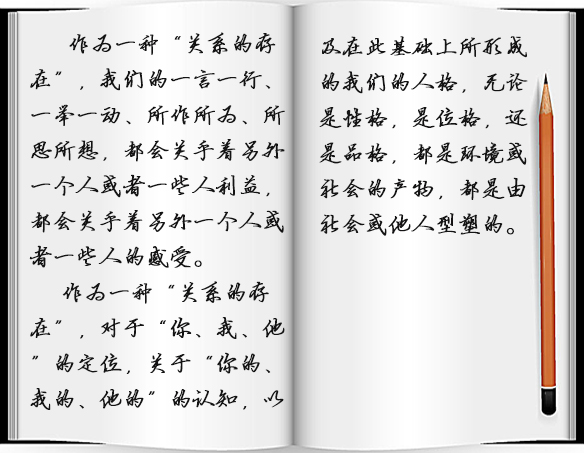 作为一种“关系的存
在”，我们的一言一行、
一举一动、所作所为、所
思所想，都会关乎着另外
一个人或者一些人利益，
都会关乎着另外一个人或
者一些人的感受。
作为一种“关系的存
在”，对于“你、我、他
”的定位，关于“你的、
我的、他的”的认知，以
及在此基础上所形成
的我们的人格，无论
是性格，是位格，还
是品格，都是环境或
社会的产物，都是由
社会或他人型塑的。